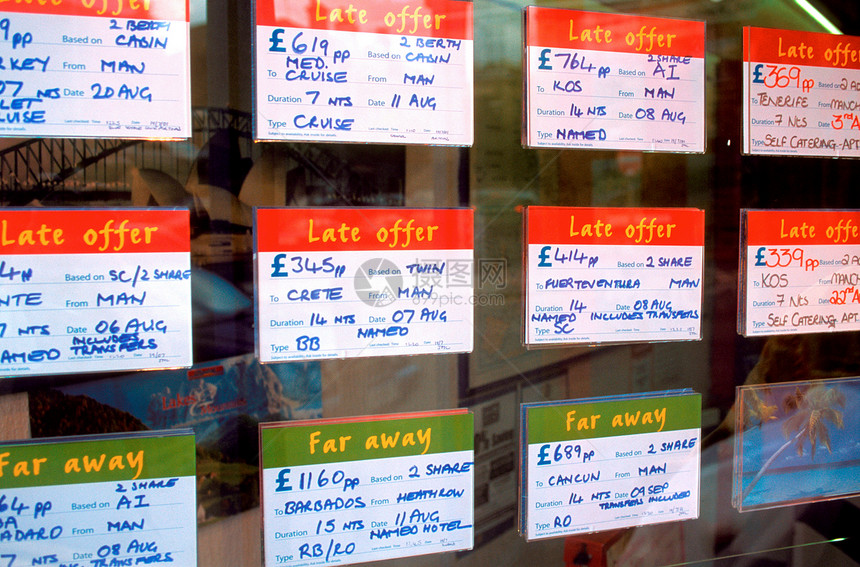 2 BERTH
9pp Based on CABIN
RKEY From MAN
07 NTS Date 20 AUG
LET
UISE
Late offer
£619pp Based on 2 BERTH CABIN
To MED. CRUISE From MAN
Duration 7 NTS Date 11 AUG
Type CRUISE
Late offer
£764pp Based on 2 SHARE AI
To KOS From MAN
Duration 14 NTS Date 08 AUG
Type NAMED
Late offer
£369pp Based on 2 AD
To TENERIFE From MANCH
Duration 7 NTS Date 3rd A
Type SELF CATERING APT
Late offer
4pp Based on SC/2 SHARE
NTE From MAN
NTS Date 06 AUG
NAMED INCLUDES TRANSFERS
Late offer
£345pp Based on TWIN
To CRETE From MAN
Duration 14 NTS Date 07 AUG
Type BB NAMED
Late offer
£414pp Based on 2 SHARE
To FUERTEVENTURA From MAN
Duration 14 Date 08 AUG
NAMED INCLUDES TRANSFERS
Type SC
Late offer
£339pp Based on 2 AD
To KOS From MANCH
Duration 7 NTS Date 22nd A
Type SELF CATERING APT
Far away
64pp Based on 2 SHARE AI
ADARO From MAN
NTS Date 08 AUG
NAMED TRANSFERS
Far away
£1160pp Based on 2 SHARE
To BARBADOS From HEATHROW
Duration 15 NTS Date 11 AUG
Type RB/RO NAMED HOTEL
Far away
£689pp Based on 2 SHARE
To CANCUN From MAN
Duration 14 NTS Date 09 SEP
Type RO TRANSFERS INCLUDED
摄图网